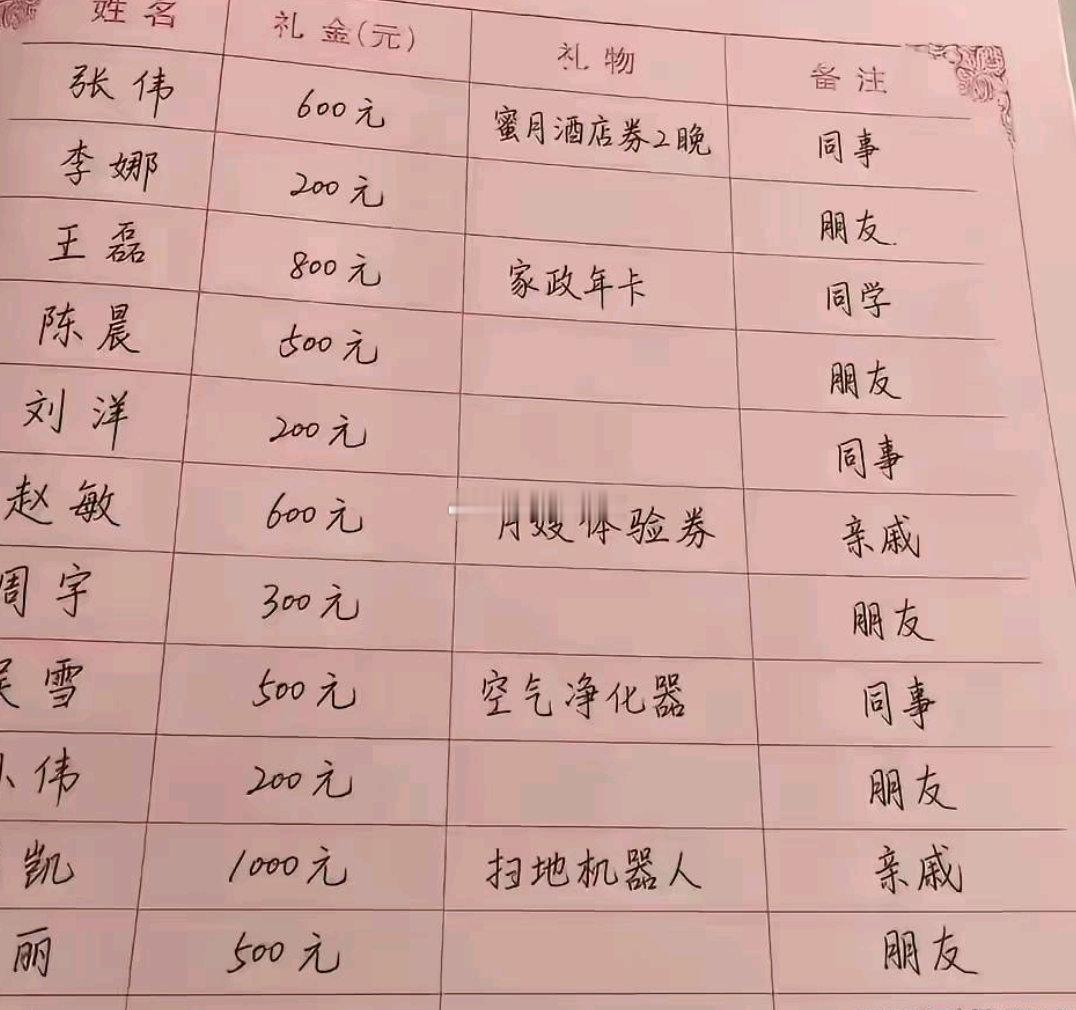 姓名 礼金(元) 礼物 备注
张伟 600元 蜜月酒店券2晚 同事
李娜 200元 朋友.
王磊 800元 家政年卡 同学
陈晨 500元 朋友
刘洋 200元 同事
赵敏 600元 月嫂体验券 亲戚
周宇 300元 朋友
雪 500元 空气净化器 同事
伟 200元 朋友
凯 1000元 扫地机器人 亲戚
丽 500元 朋友